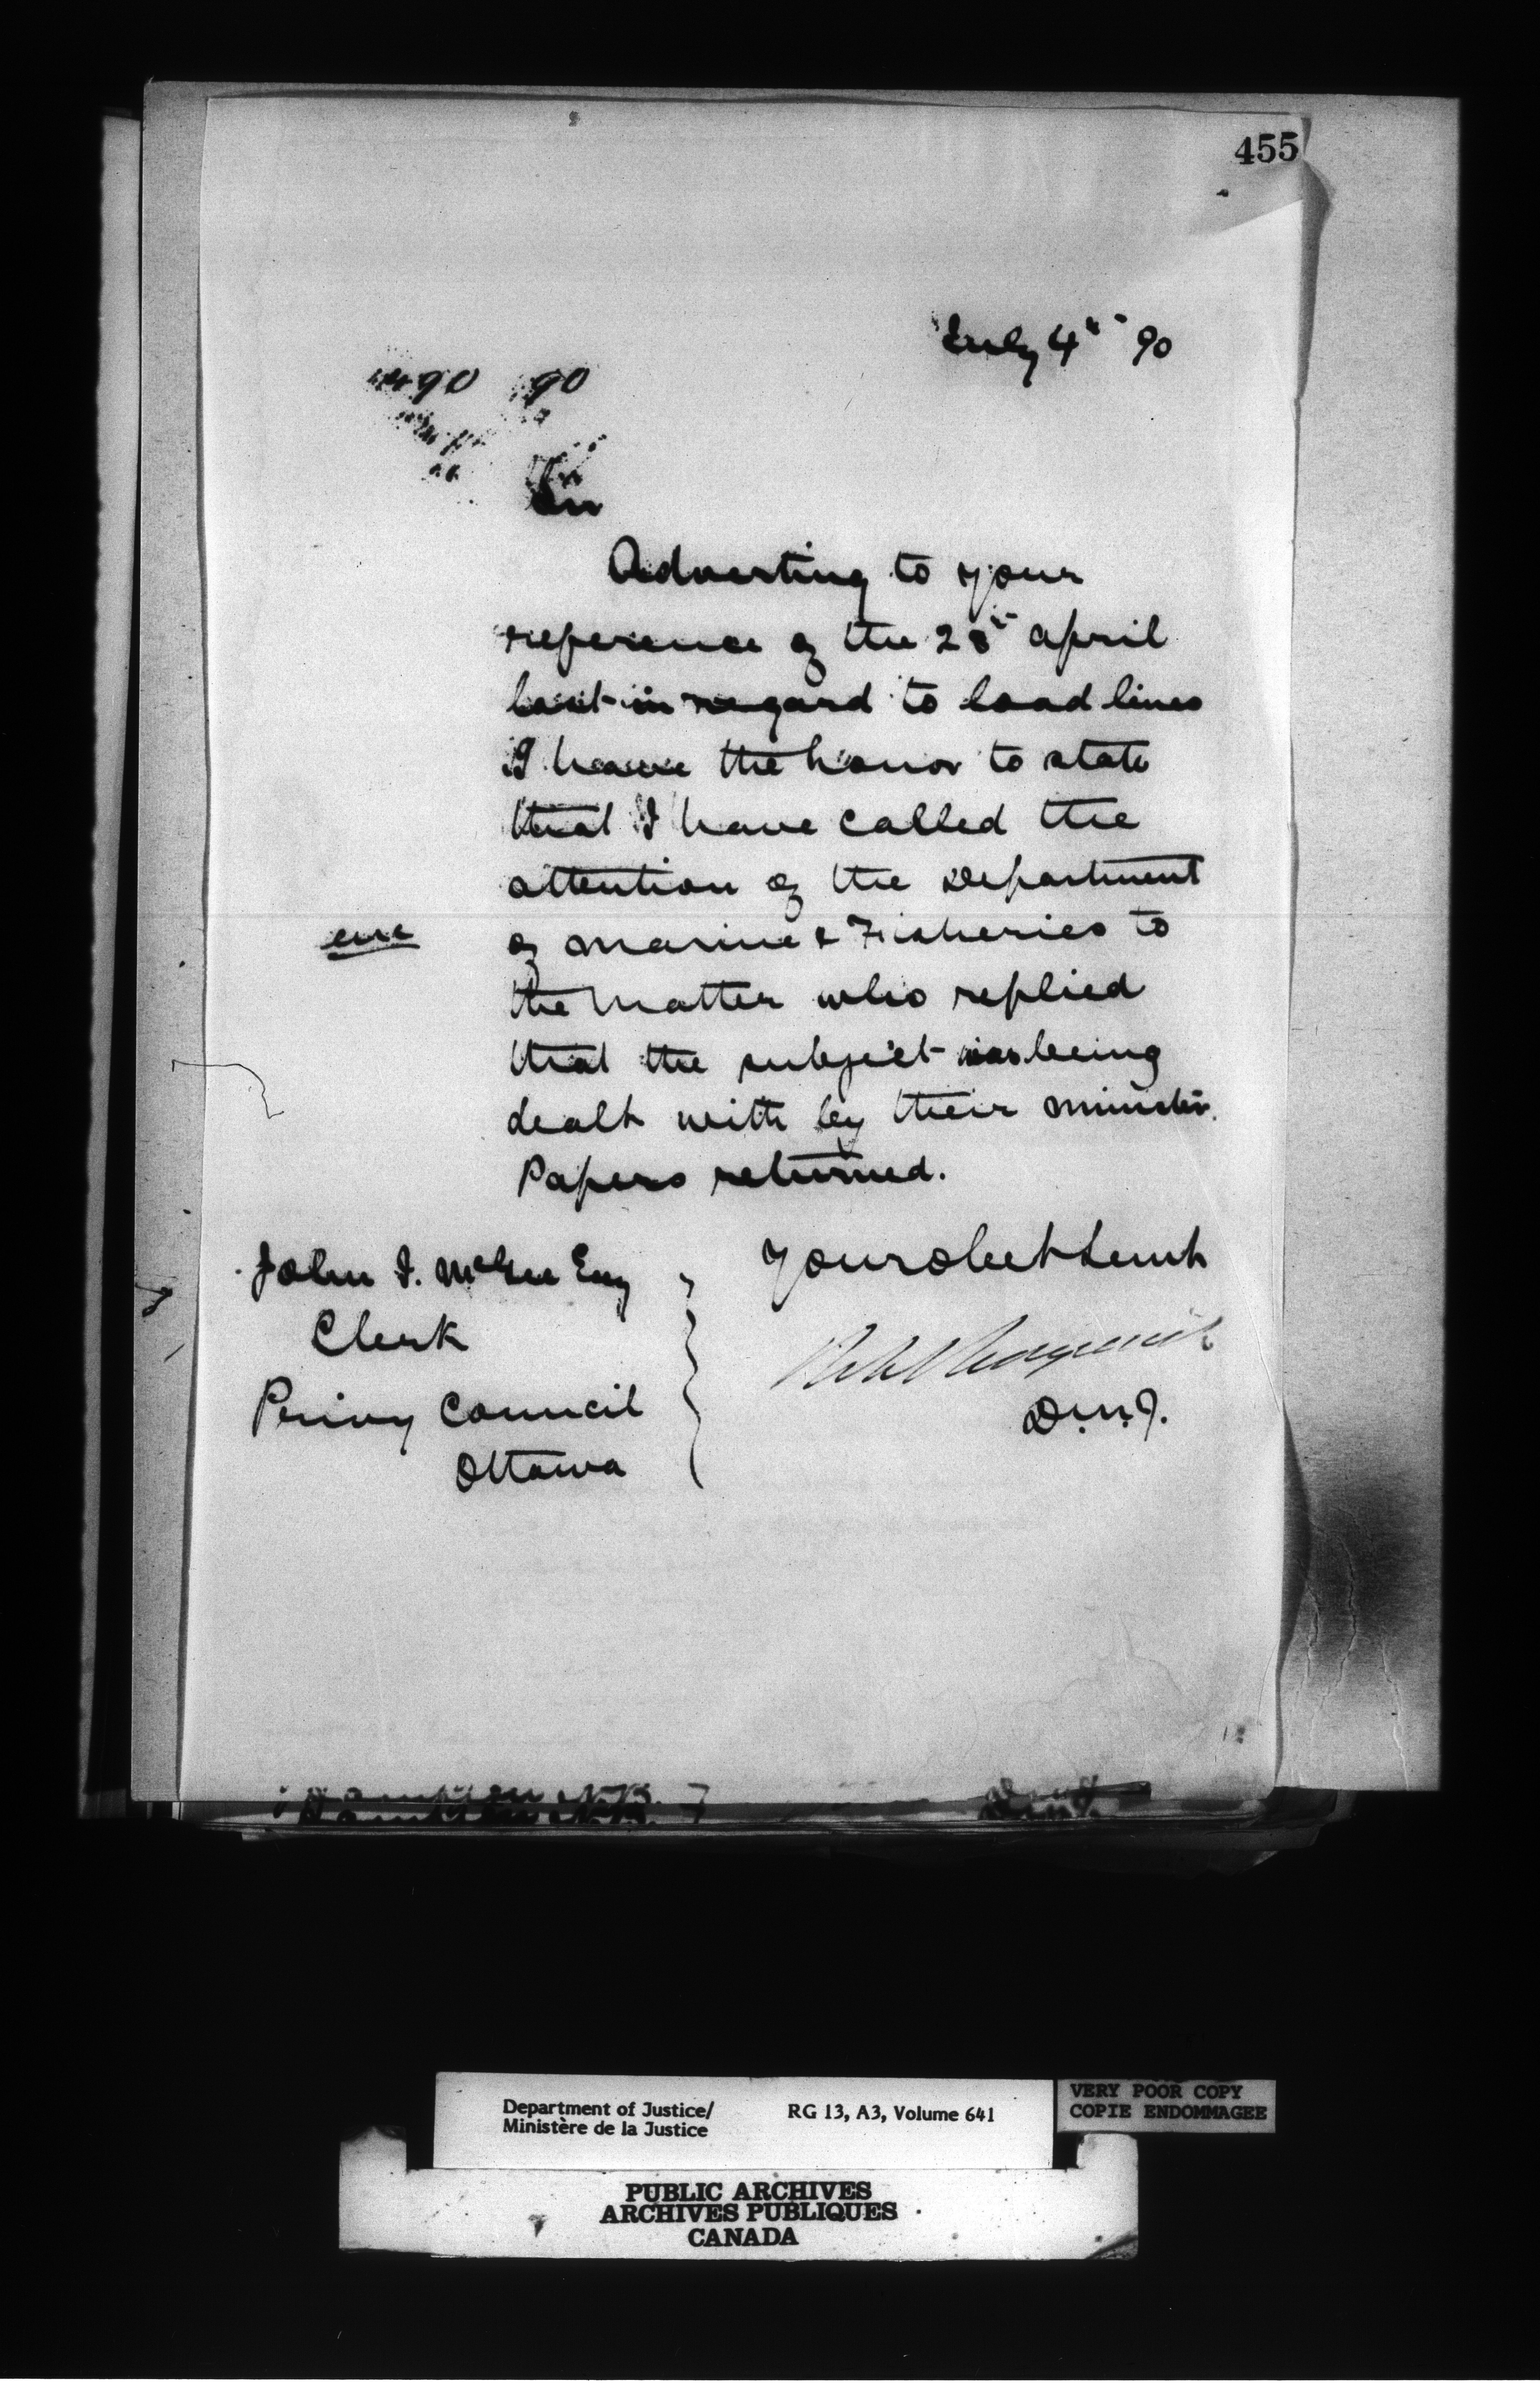 455
July 4th 90
90 90
Sir
Adverting to your
reference of the 28th April
last in regard to load lines
I have the honor to state
that I have called the
attention of the Department
enc
of Marine & Fisheries to
the matter who replied
that the subject was being
dealt with by their Minister.
Papers returned.
Your obedt servt
John J. McGee Esq
Clerk
Privy Council
Ottawa
D.M.J.
N.B.
Department of Justice/
Ministère de la Justice
RG 13, A3, Volume 641
VERY POOR COPY
COPIE ENDOMMAGEE
PUBLIC ARCHIVES
ARCHIVES PUBLIQUES
CANADA